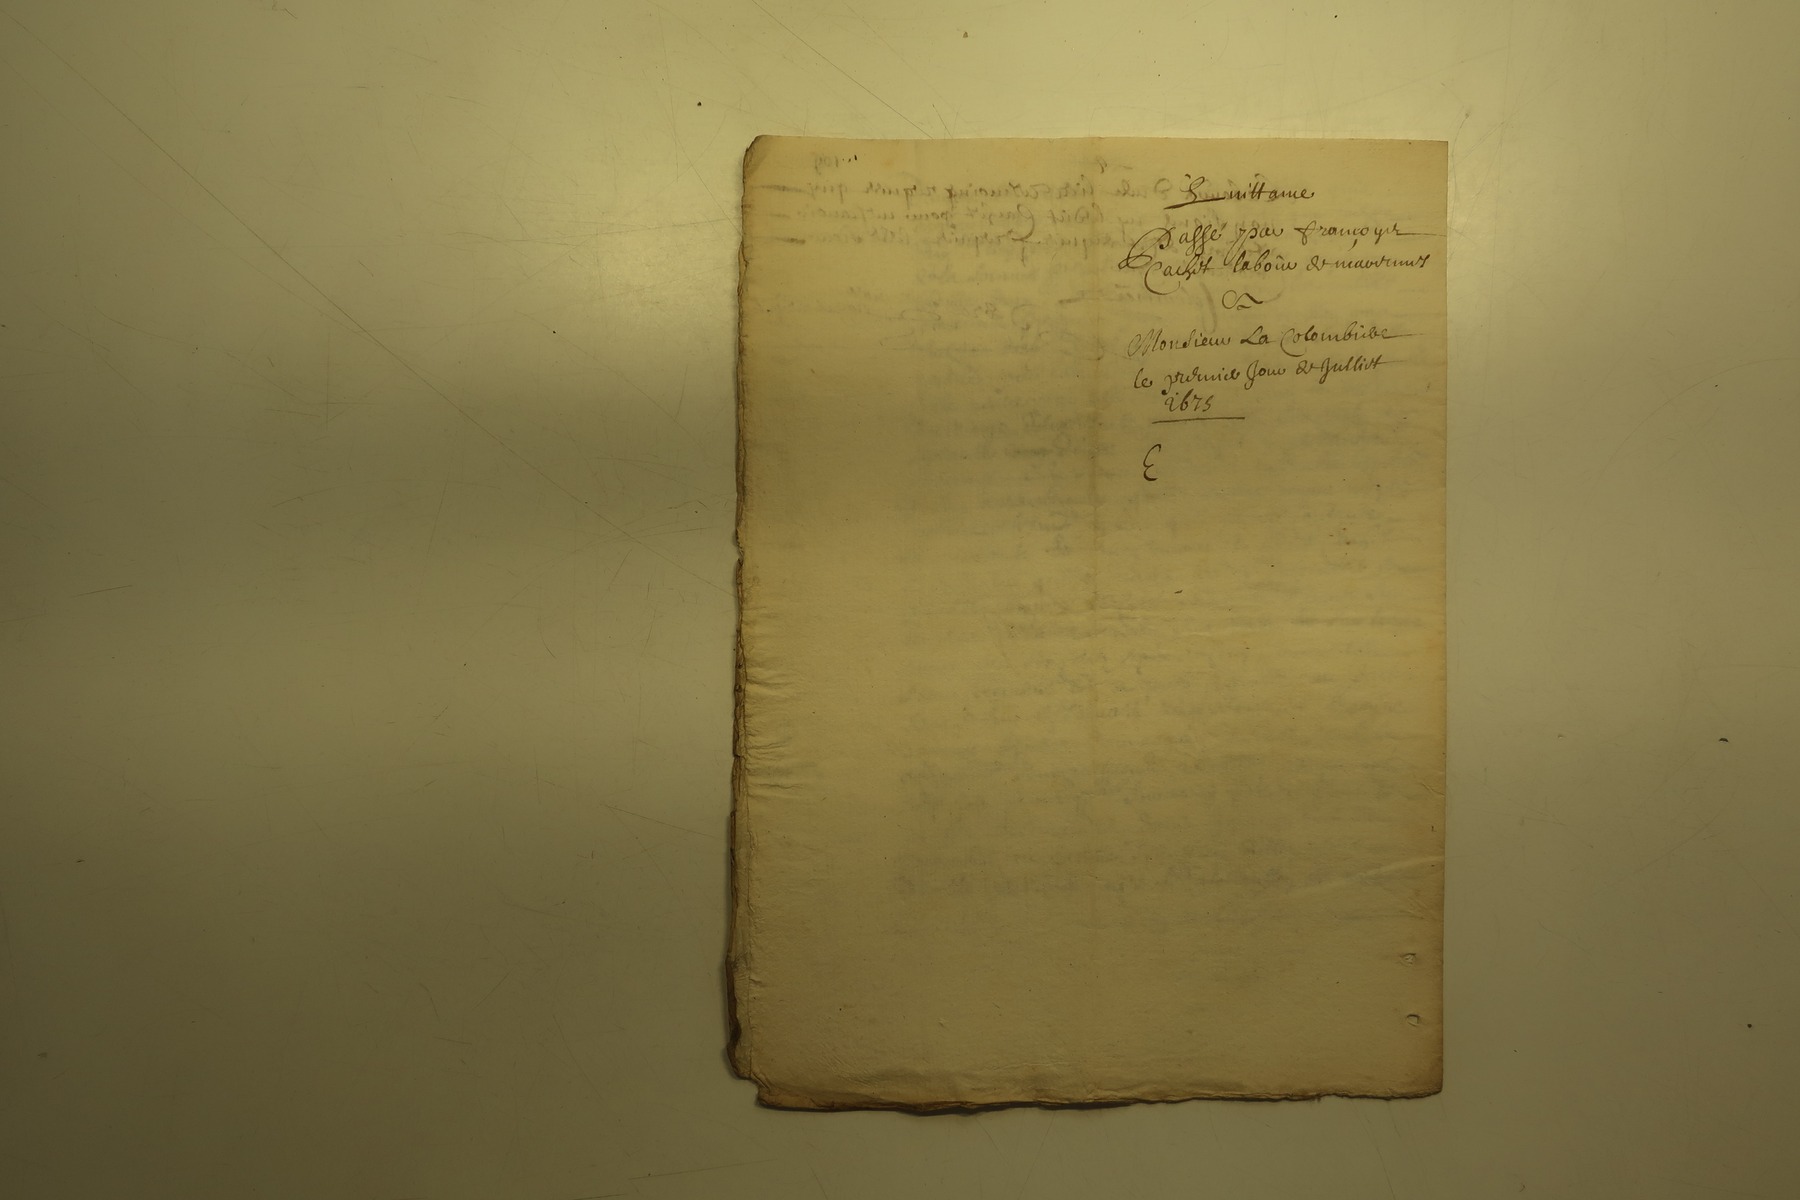 Quittance
Passé par francoys
Cachet labour de
A
Monsieur La Colombiere
le premier Jour de Julliet
1675
E